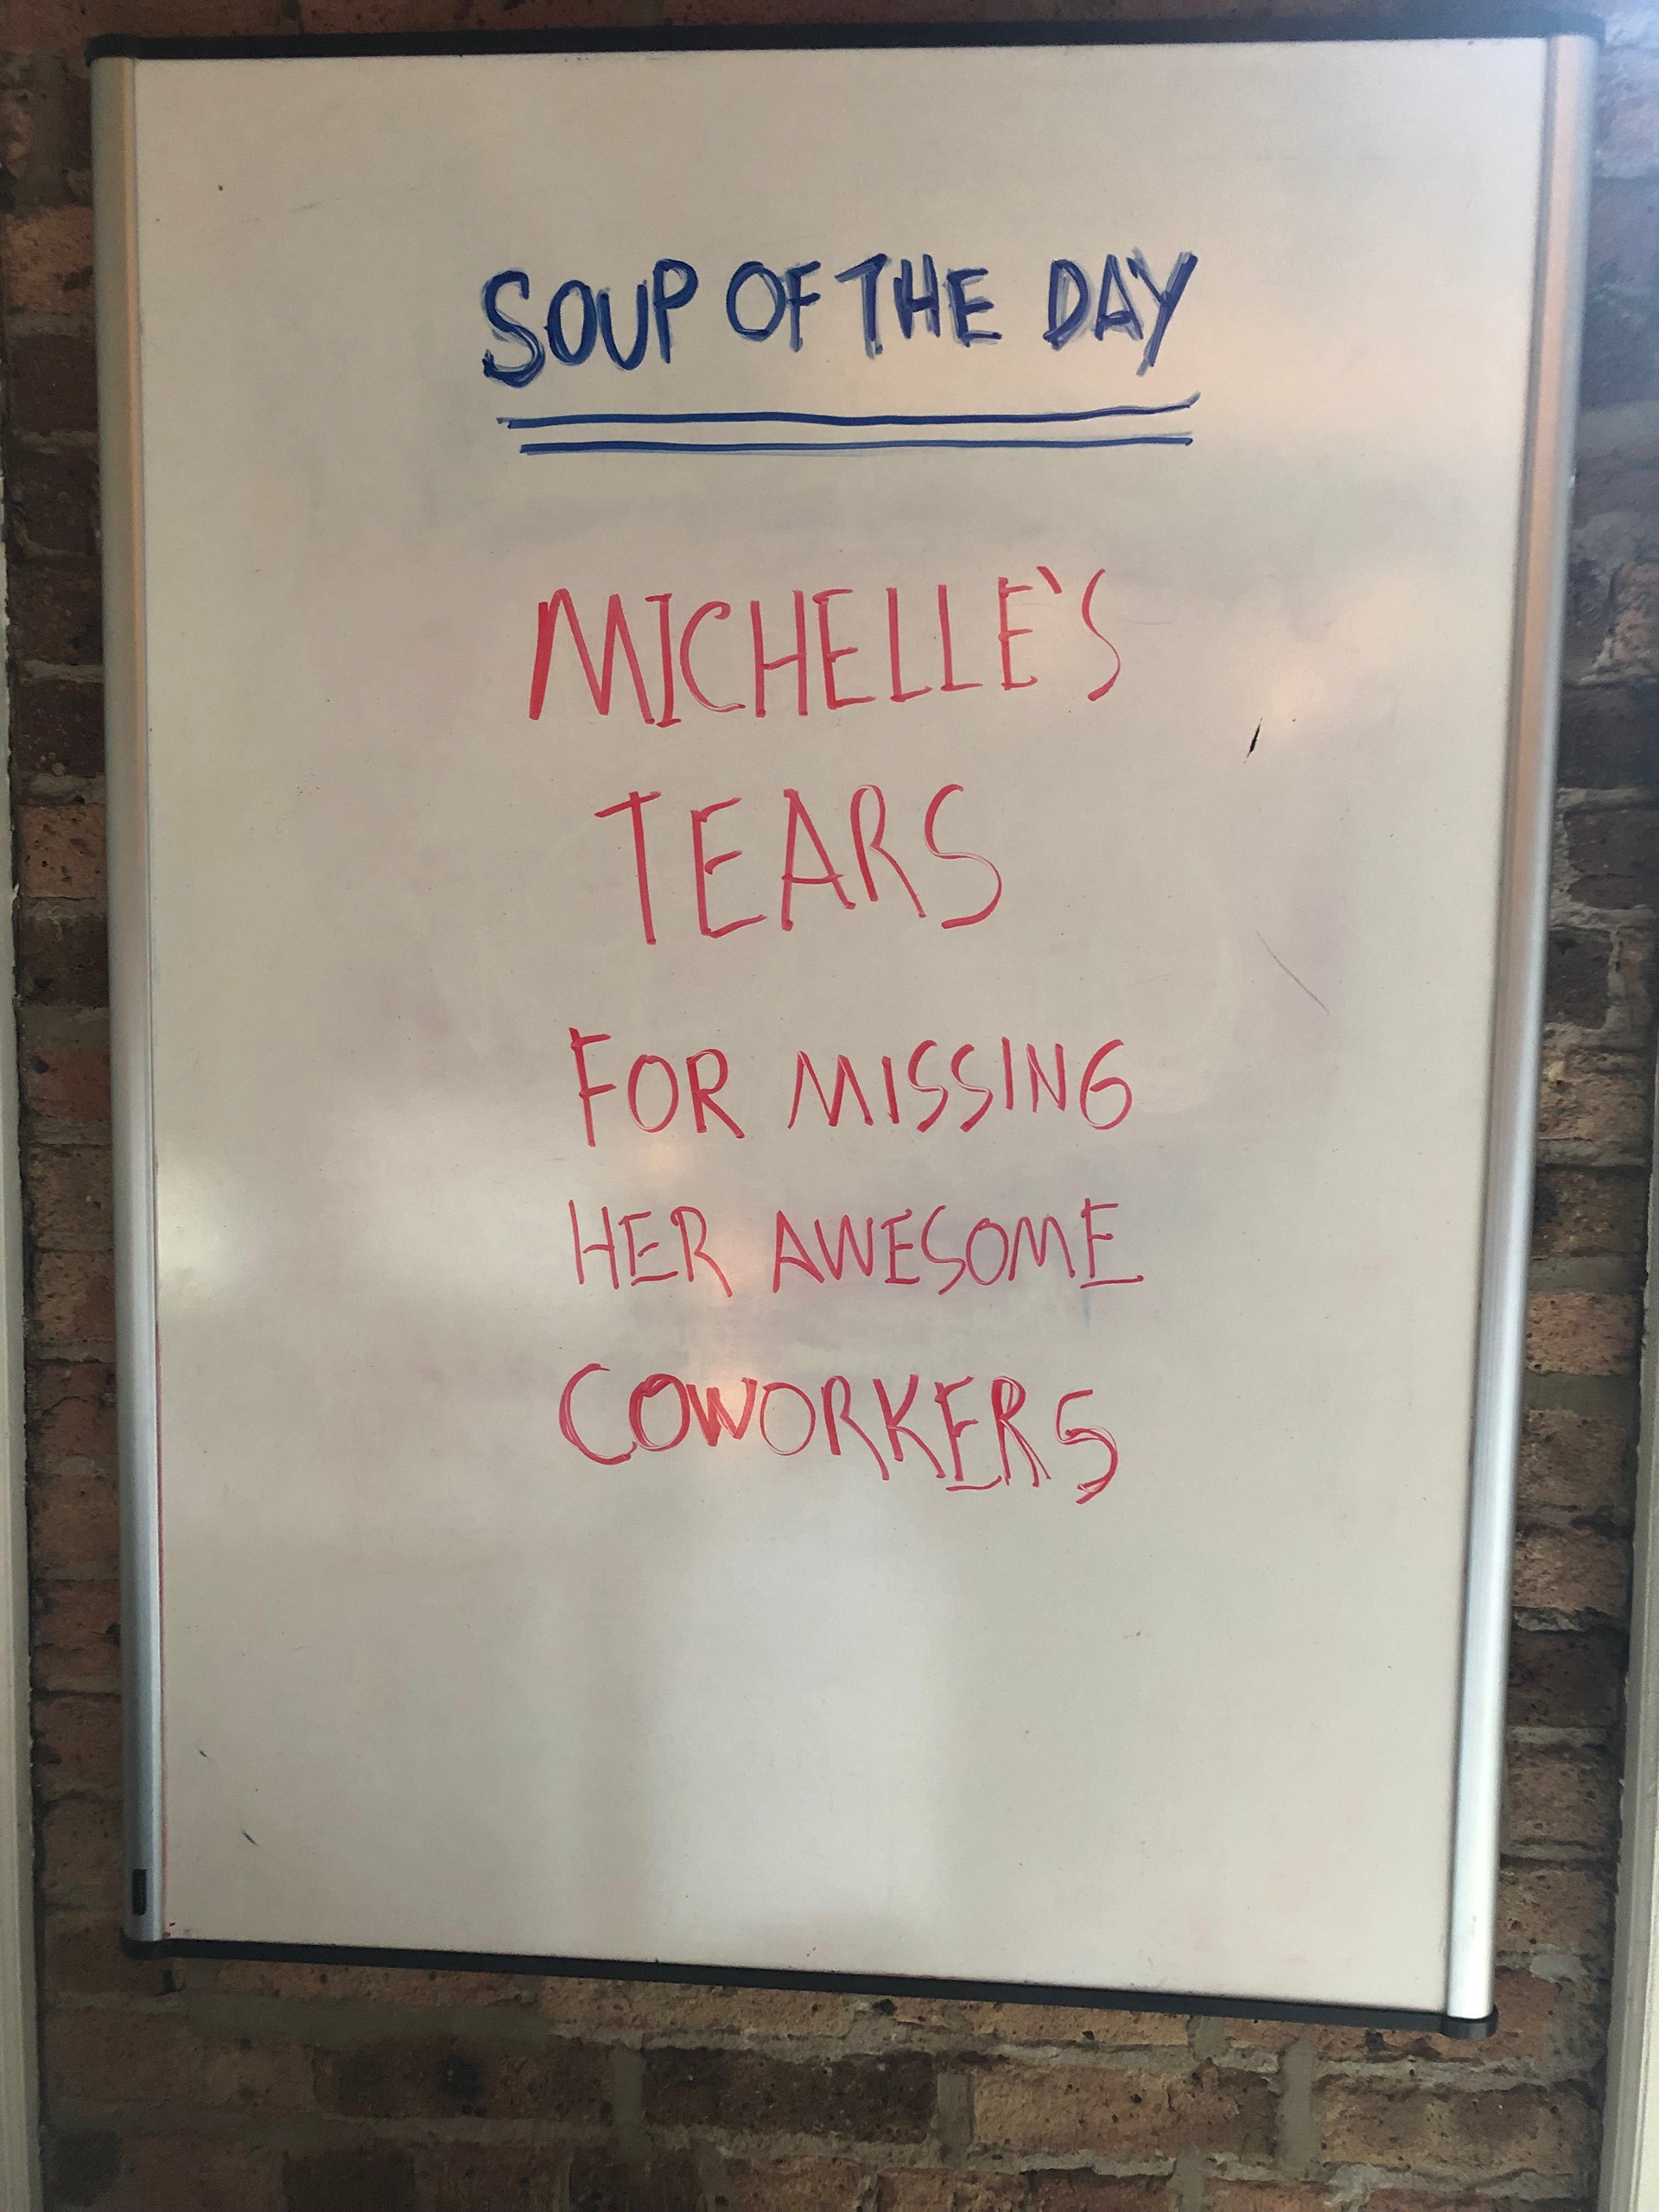 SOUP OF THE DAY
MICHELLE'S
TEARS
FOR MISSING
HER AWESOME
COWORKERS